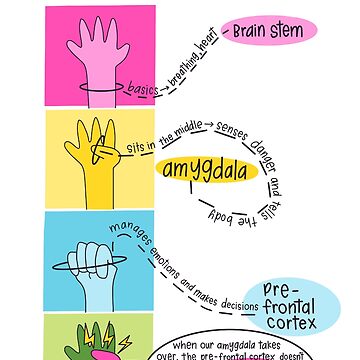 Brain stem
basics → breathing, heart
sits in the middle → senses danger and tells the body
amygdala
manages emotions and makes decisions
pre-
frontal
cortex
when our amygdala takes
over, the pre-frontal cortex doesn't